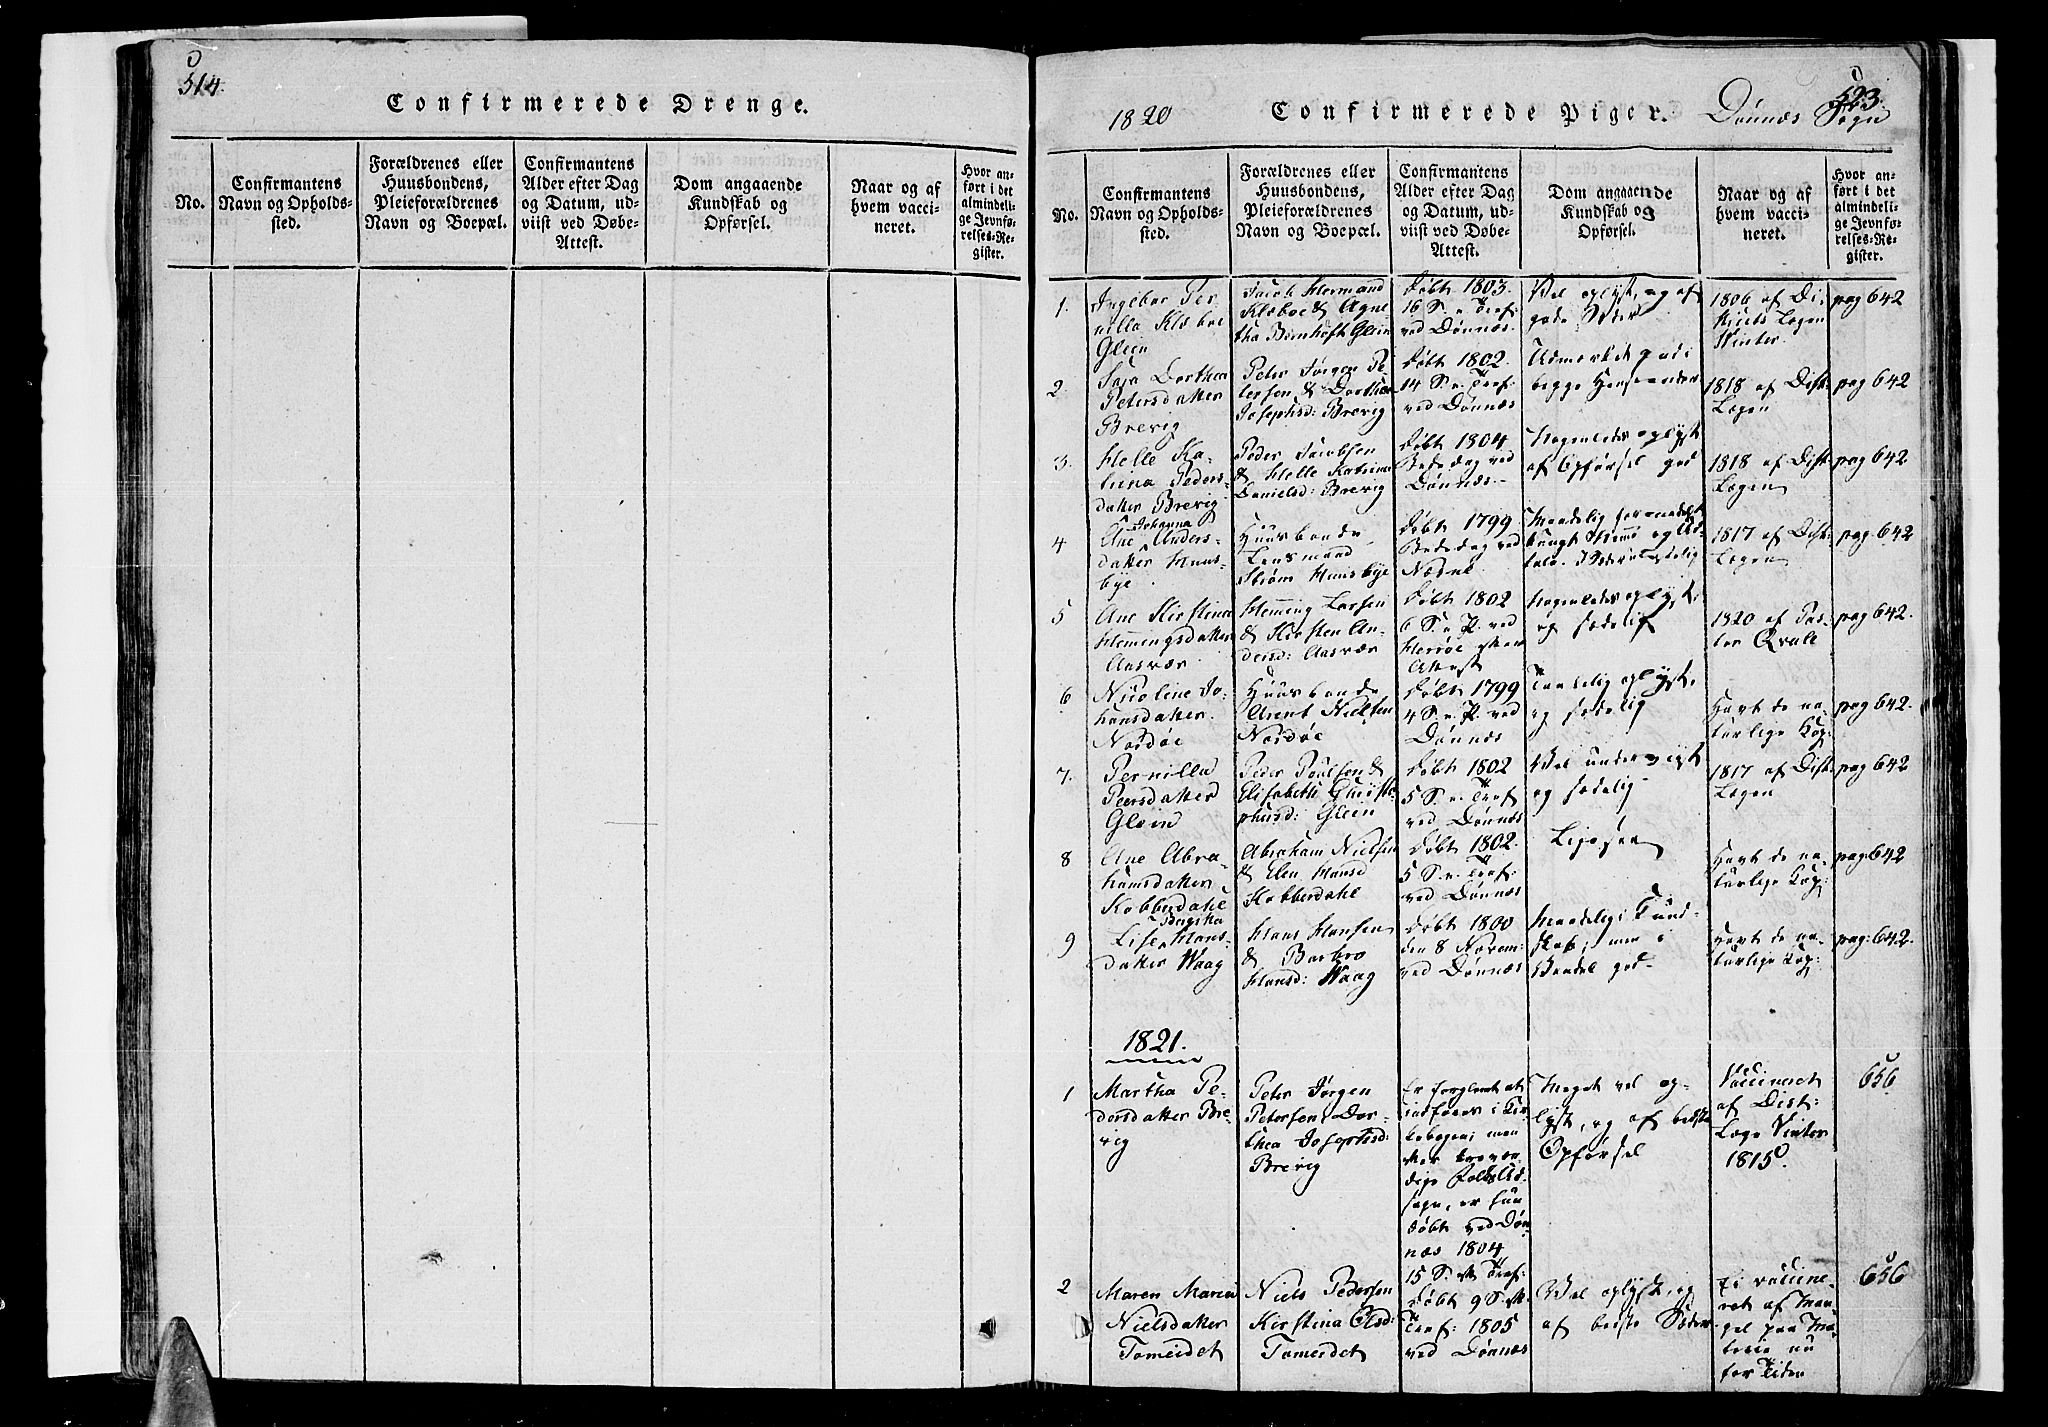 514.
Confirmerede Drenge.
No.
Confirmantens
Navn og Opholds-
sted.
Forældrenes eller
Huusbondens,
Pleieforældrenes
Navn og Boepæl.
Confirmantens
Alder efter Dag
og Datum, ud-
viist ved Døbe-
Attest.
Dom angaaende
Kundskab og
Opførsel.
Naar og af
hvem vacci-
neret.
Hvor an-
ført i det
almindeli-
ge Jevnfø-
relses-Re-
gister.
523.
1820
Confirmerede Piger.
Dønnæs Sogn
No.
Confirmantens
Navn og Opholds-
sted.
Forældrenes eller
Huusbondens,
Pleieforældrenes
Navn og Boepæl.
Confirmantens
Alder efter Dag
og Datum, ud-
viist ved Døbe-
Attest.
Dom angaaende
Kundskab og
Opførsel.
Naar og af
hvem vacci-
neret.
Hvor an-
ført i det
almindeli-
ge Jevnfø-
relses-Re-
gister.
1.
Ingebor Per
nilla Klæboe
Glein
Jacob Hermand
Klæboe & Agne
tha Bernhoft Glein
Døbt 1803.
16 S. e. Tref:
ved Dønnæs.
Vel oplyst, og af
gode Sæder
1806 af Di,
stricts Lægen
Winter.
pag 642
2.
Sara Dorthea
Petersdatter
Brevig
Peter Jørgen Pe
tersen & Dorthea
Josephsd: Brevig
Døbt 1802.
14 S. e. Tref:
ved Dønnæs
Udmærket god i
begge Henseender
1818 af Dist:
Lægen
pag 642
3.
Helle Ka-
trina Peders-
datter Brevig
Peder Jacobsen
& Helle Katrina
Danielsd: Brevig
Døbt 1804
Bededag ved
Dønnæs.
Nogenledes oplyst
af Opførsel god
1818 af Dist:
Lægen
pag 642
4
Ane Johanna Anders-
datter Huus-
bye
Huusbonde
Lensmand
Strøm Huusbye
Døbt 1799
Bededag ved
Næsne
Maadelig
1817 af Dist:
Lægen
pag 642
5
Ane Kirstina
Hemmingsdatter
Aasvær
Hemming Larsen
& Kirsten An-
dersd: Aasvær
Døbt 1802
6 S. e. P. ved
Herrøe efter
Attest
Nogenledes oplyst,
og sædelig
1820 af Pas-
tor Qvale
pag 642.
6
Nicoline Jo-
hansdatter
Nordøe
Huusbonde
Arent Nielsen
Nordøe
Døbt 1799
4 S. e. P. ved
Dønnæs
Taalelig oplyst,
og sædelig
Havt de na-
turlige Kop:
pag 642.
7.
Pernilla
Peersdatter
Glein
Peder Poulsen &
Elisabeth Christo-
phersd: Glein
Døbt 1802
5 S. e. Tref
ved Dønnæs
Vel underviist
og sædelig
1817 af Dist:
Lægen
pag 642
8
Ane Abra-
hamsdatter
Kobberdahl
Abraham Nielsen
& Elen Hansd
Kobberdahl
Døbt 1802.
5 S. e. Tref:
ved Dønnæs
Ligesaa
Havt de na-
turlige Kop:
pag: 642
9
Lise Birgitha Hans-
datter Waag
Hans Hansen
& Barbro
Hansd: Waag
Døbt 1800
den 8 Novem:
ved Dønnæs
Maadelig i Kund-
skab, men i
Vandel god
Havt de na-
turlige Kop:
pag: 642.
1821.
1
Martha Pe-
dersdatter Bre-
vig
Peter Jørgen
Petersen, Dor-
thea Josephsd:
Brevig
Er forglemt at
indføres i Kir
kebogen; men
efter troevær
dige Folks Ud-
sagn, er hun
døbt ved Døn
næs 1804
15 S. e. Tref:
Meget vel op-
lyst, og af bedste
Opførsel
Vaccineret
af Dist:
Læge Winter
1815.
656
2
Maren Maria
Nielsdatter
Tomeidet
Niels Pedersen
Kirstina Olsd:
Tomeidet
Døbt 9 S. e.
Tref: 1805
ved Dønnæs
Vel oplyst, og
af bedste Sæder
Ei vaccine-
ret af Man-
gel paa Ma-
terie nu
for Tiden
656